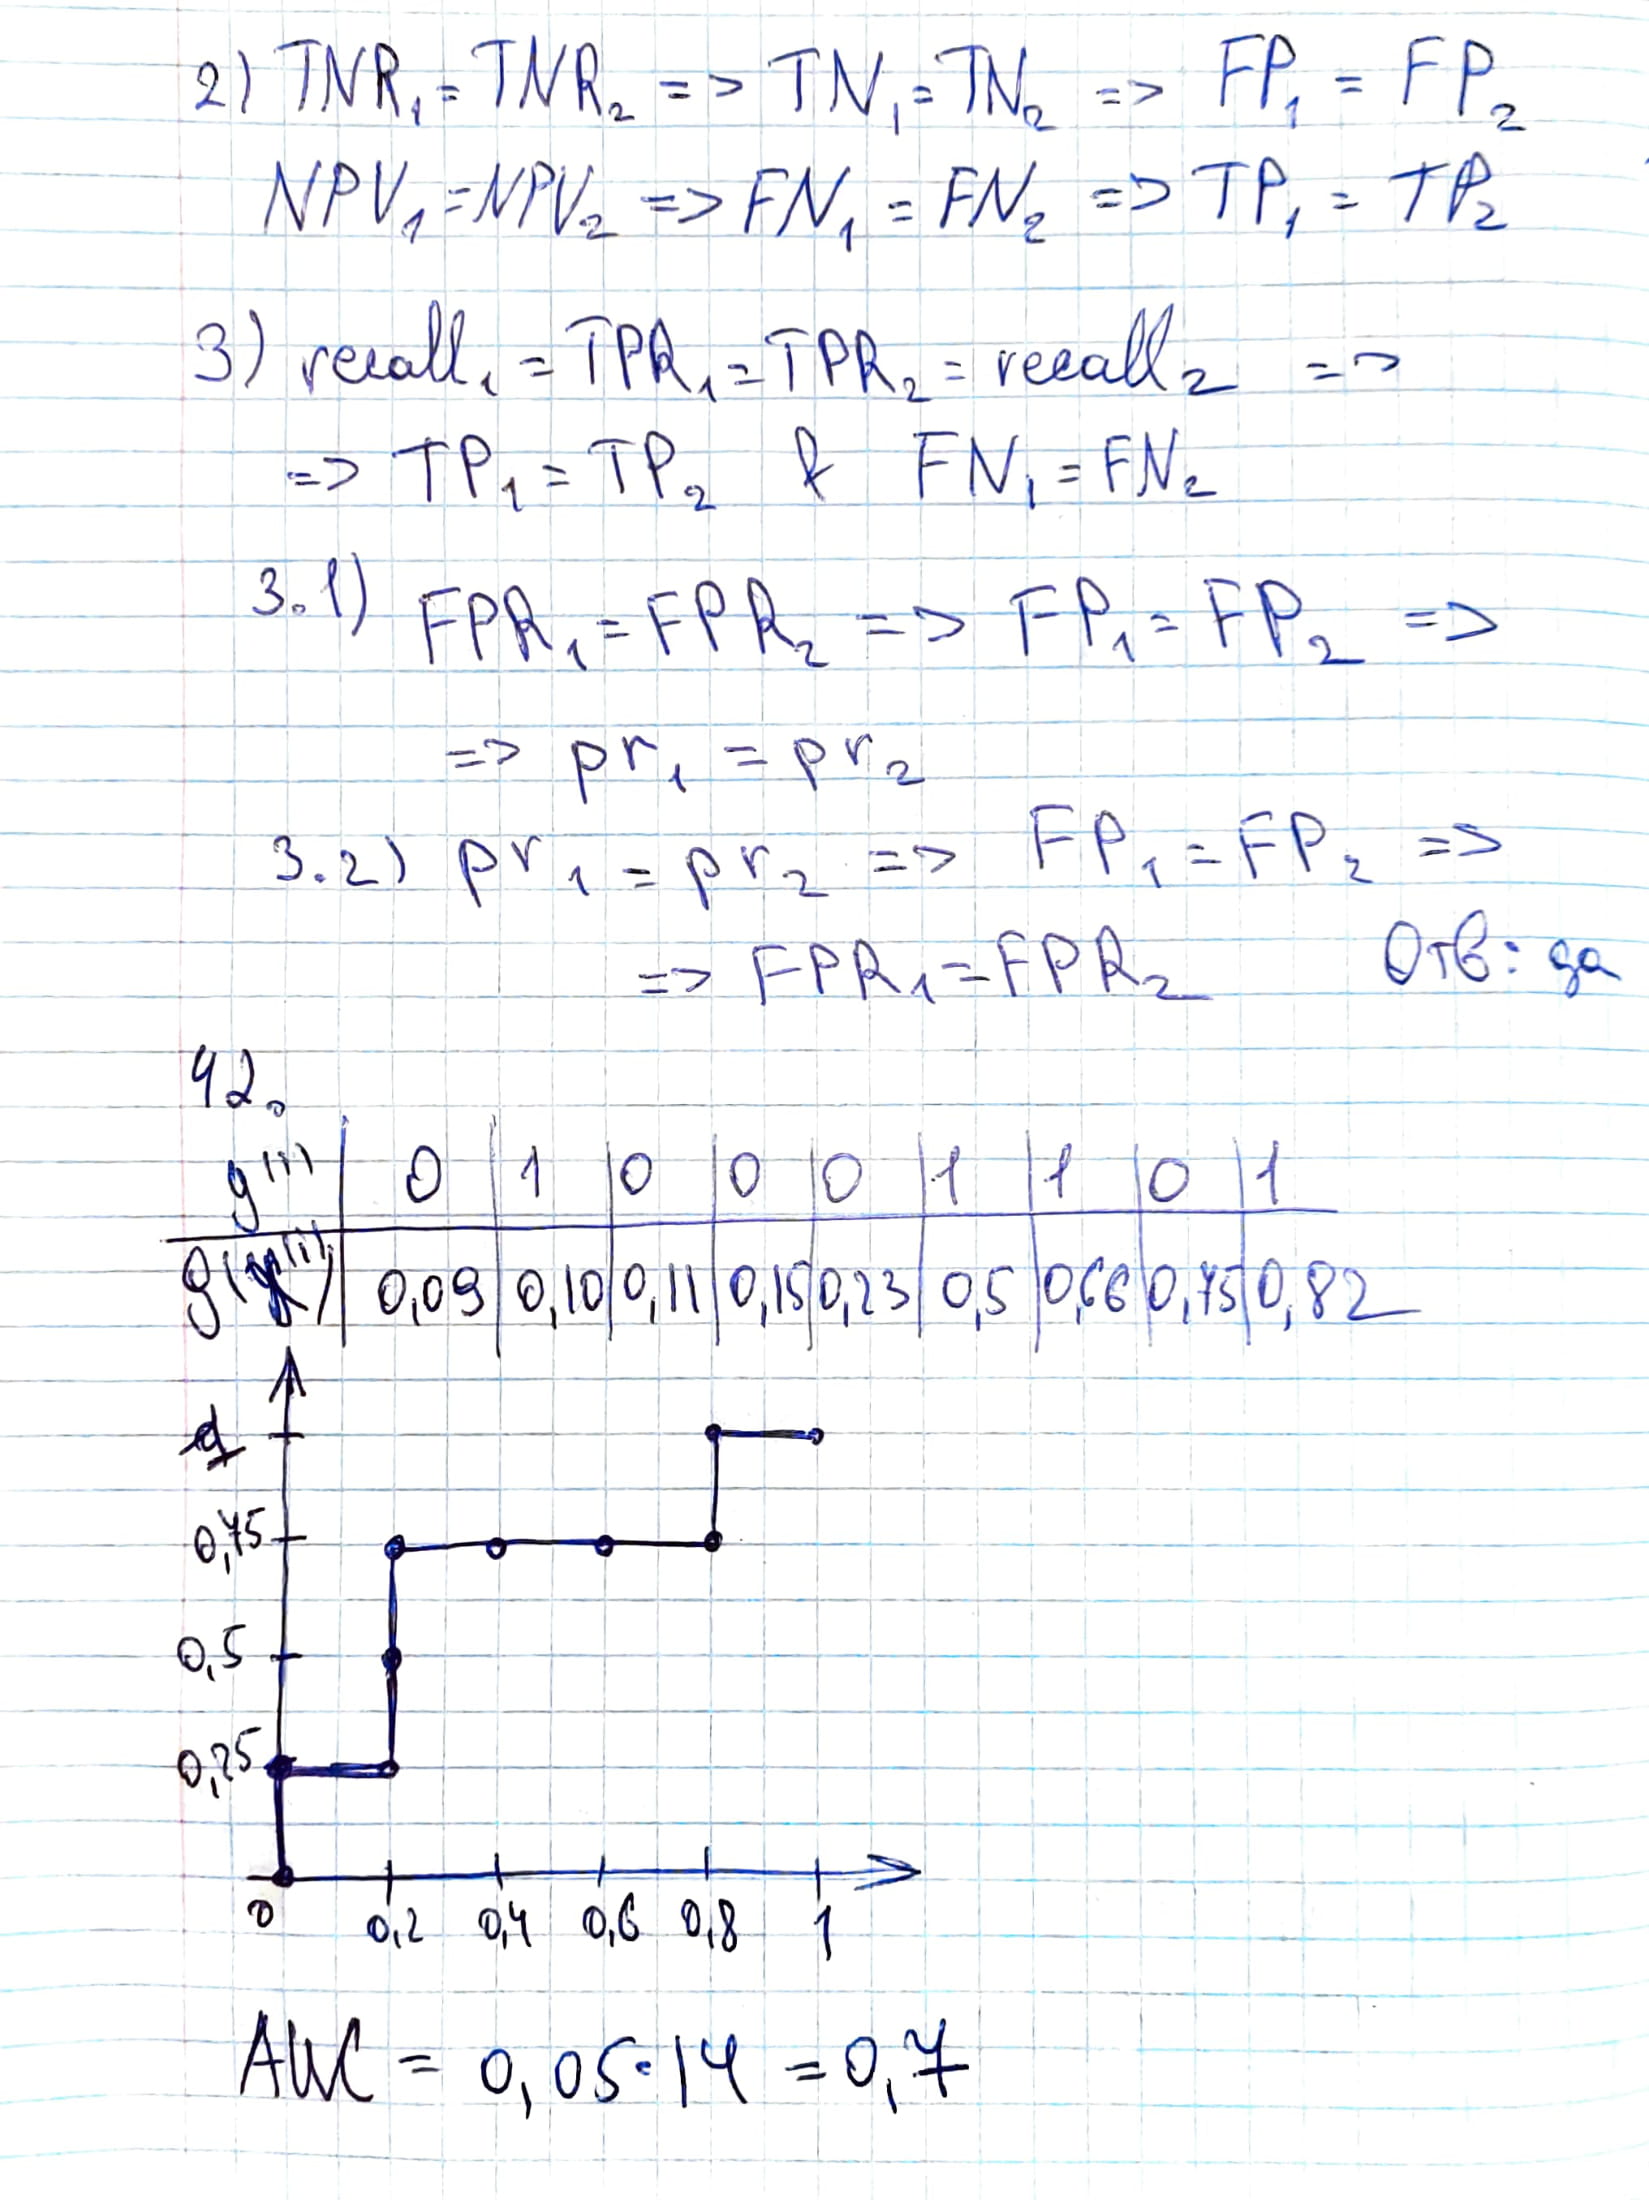 2) TNR₁ = TNR₂ => TN₁ = TN₂ => FP₁ = FP₂
NPV₁ = NPV₂ => FN₁ = FN₂ => TP₁ = TP₂
3) recall₁ = TPR₁ = TPR₂ = recall₂ =>
=> TP₁ = TP₂ & FN₁ = FN₂
3.1) FPR₁ = FPR₂ => FP₁ = FP₂ =>
=> pr₁ = pr₂
3.2) pr₁ = pr₂ => FP₁ = FP₂ =>
=> FPR₁ = FPR₂ Отв: да
42.
y⁽ⁱ⁾ | 0 | 1 | 0 | 0 | 0 | 1 | 1 | 0 | 1
g(x⁽ⁱ⁾) | 0,09 | 0,10 | 0,11 | 0,15 | 0,23 | 0,5 | 0,66 | 0,75 | 0,82
1
0,75
0,5
0,25
0 0,2 0,4 0,6 0,8 1
AUC = 0,05·14 = 0,7